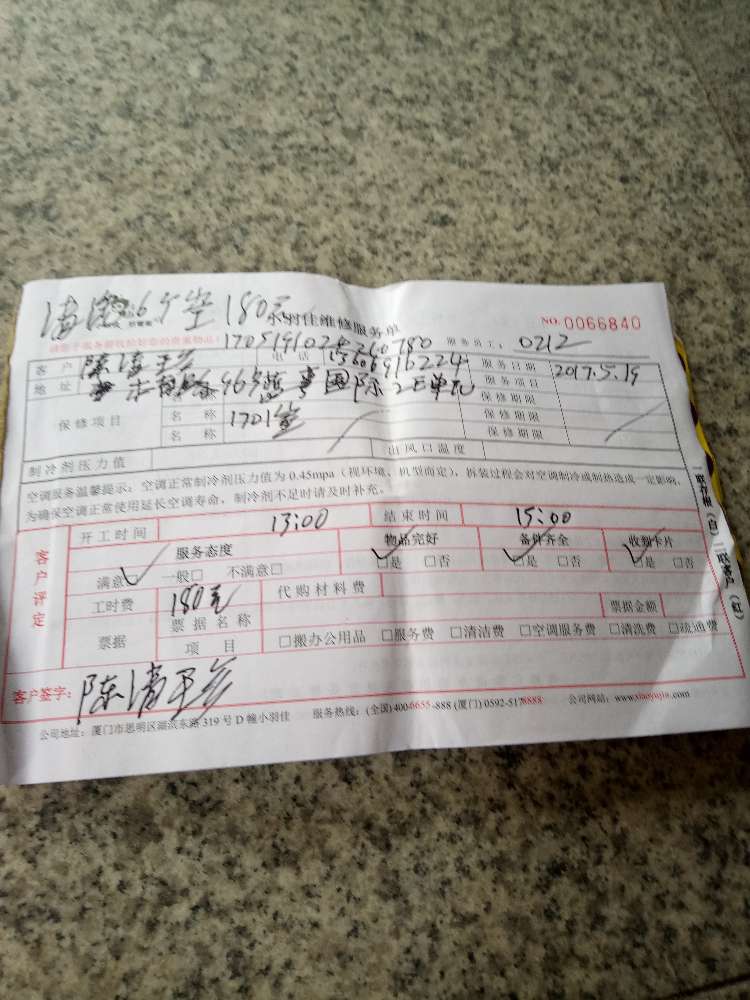 180元
小羽佳维修服务单
NO.0066840
170519102
服务员工: 0212
客户 陈
电话
服务日期 2017.5.19
地址 96号 国际 2 单元
服务项目
保修项目
名称 1701室
保修期限
名称
保修期限
保修期限
制冷剂压力值
出风口温度
空调服务温馨提示:空调正常制冷剂压力值为0.45mpa(视环境、机型而定),拆装过程会对空调制冷或制热造成一定影响,
为确保空调正常使用延长空调寿命,制冷剂不足时请及时补充。
客户评定
开工时间 13:00 结束时间 15:00
服务态度 物品完好 备件齐全 收到卡片
满意 一般□ 不满意□ □是 □否 □是 □否 □是 □否
工时费 180元 代购材料费
票据 票据名称 票据金额
项目 □搬办公用品 □服务费 □清洁费 □空调服务费 □清洗费 □疏通费
客户签字: 陈
公司地址:厦门市思明区湖滨东路319号D幢小羽佳 服务热线:(全国)400-6655-888 (厦门)0592-5178888 公司网站:www.xiaoyujia.com
一联存根(白) 二联客户(红)